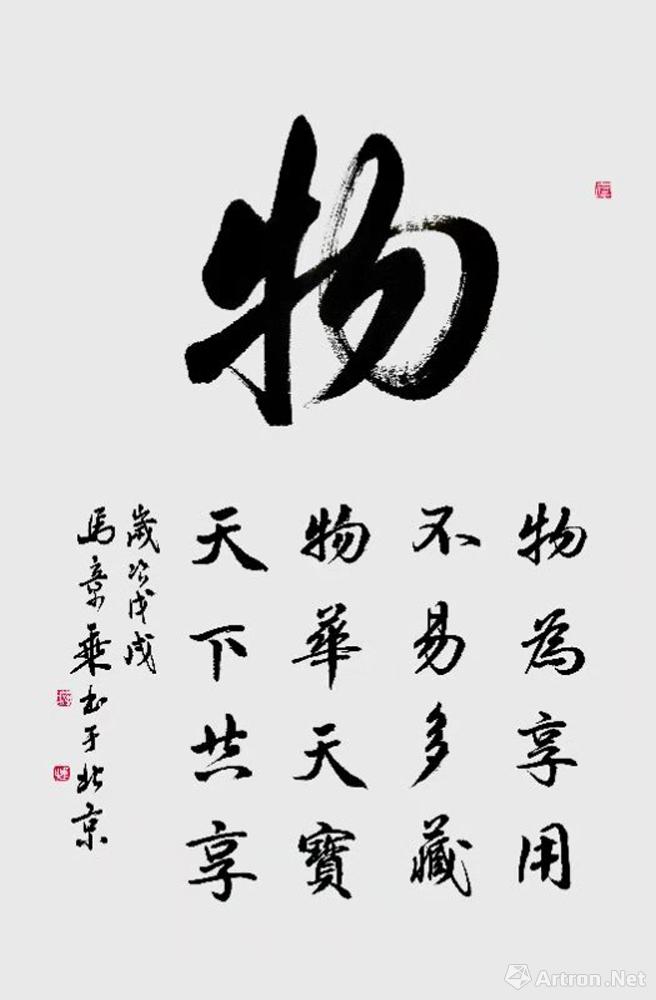 物
物為享用
不易多藏
物華天寶
天下共享
歲次戊戌
馬章乘书于北京
Artron.Net